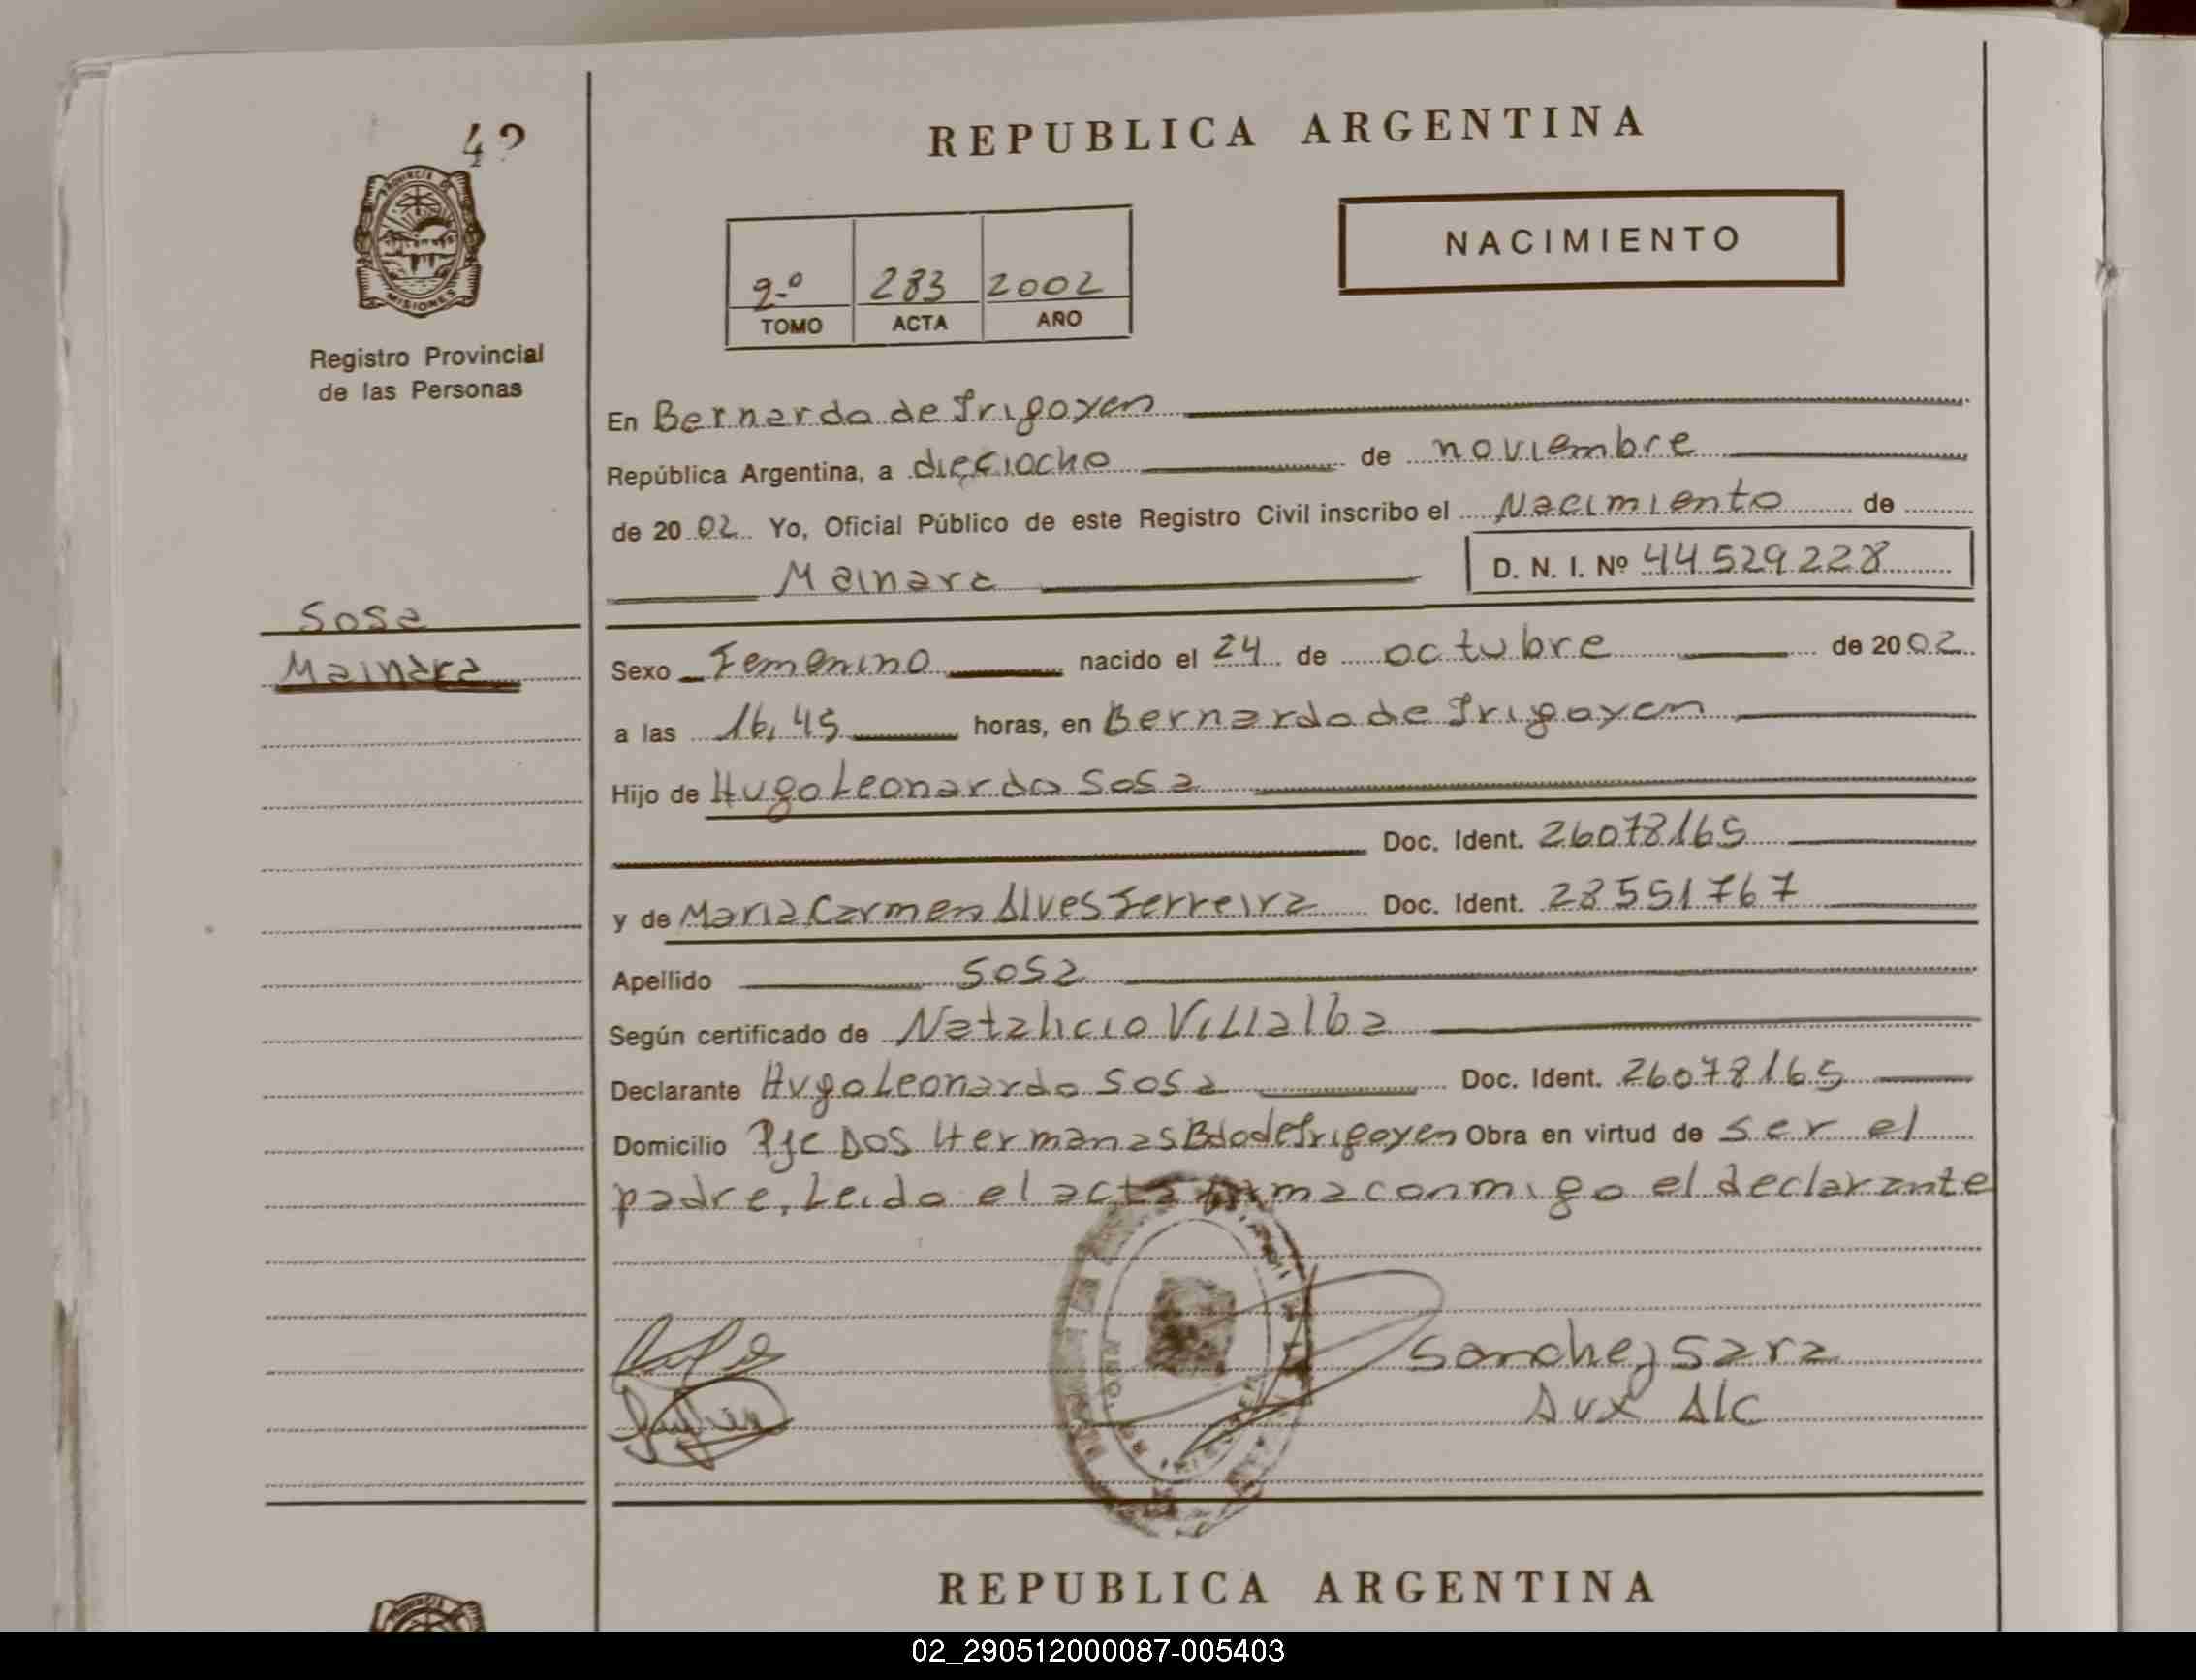 42
REPUBLICA ARGENTINA
PROVINCIA DE
MISIONES
Registro Provincial
de las Personas
NACIMIENTO
2º 283 2002
TOMO ACTA AÑO
En Bernardo de Irigoyen
República Argentina, a dieciocho de noviembre
de 2002 Yo, Oficial Público de este Registro Civil inscribo el Nacimiento de
Mainara D. N. I. Nº 44529228
Sosa
Mainara
Sexo Femenino nacido el 24 de octubre de 2002
a las 16,45 horas, en Bernardo de Irigoyen
Hijo de Hugo Leonardo Sosa
Doc. Ident. 26078165
y de Maria Carmen Alves Ferreira Doc. Ident. 28551767
Apellido Sosa
Según certificado de Natalicio Villalba
Declarante Hugo Leonardo Sosa Doc. Ident. 26078165
Domicilio Pje Dos Hermanas Bdo de Irigoyen Obra en virtud de ser el
padre, Leido el acta firma conmigo el declarante
Sanchez Sara
Aux A/C
REPUBLICA ARGENTINA
02_290512000087-005403